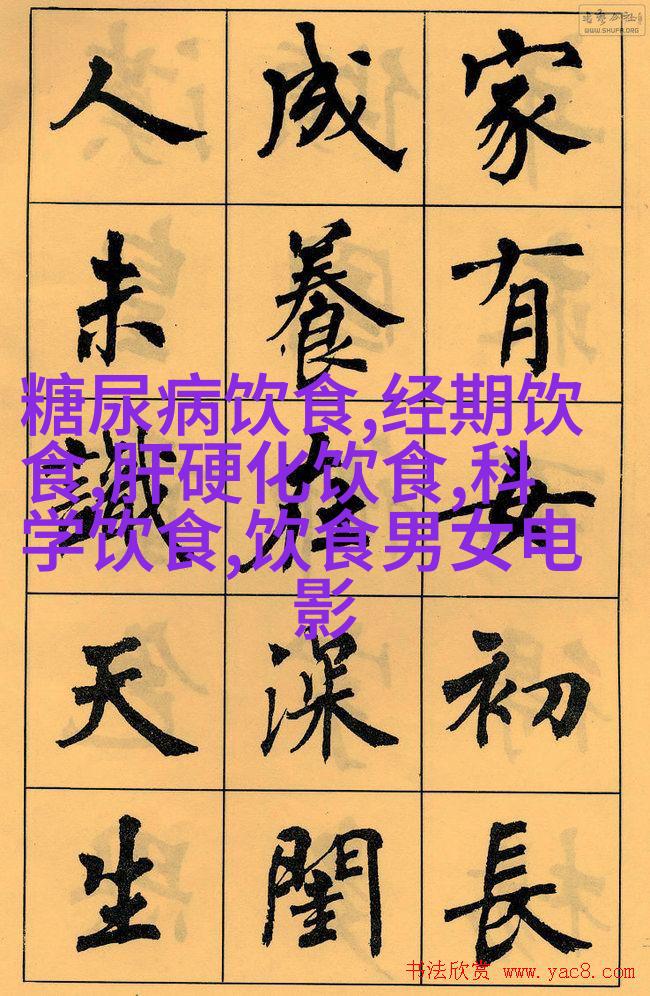 家有女初長
成養在深閨
人未識天生
糖尿病饮食,经期饮
食,肝硬化饮食,科
学饮食,饮食男女电
影
WWW.SHUFA.ORG
书法欣赏 www.yac8.com